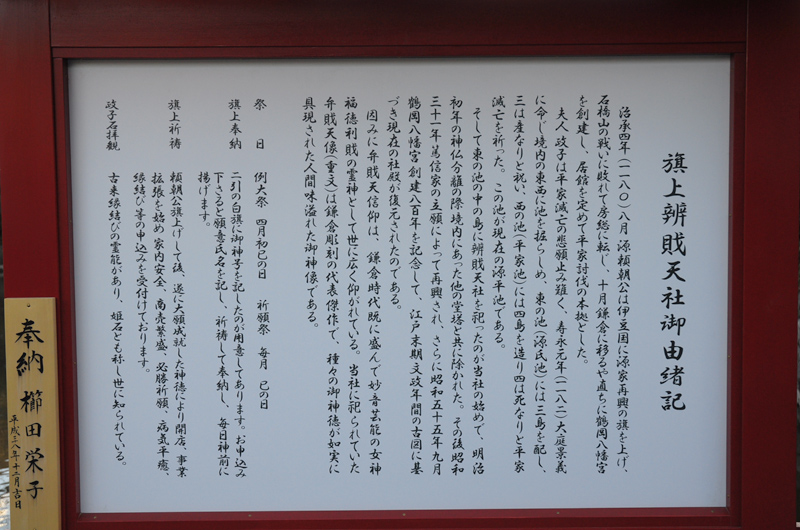 旗上辨財天社御由緒記
治承四年(一一八〇)八月 源頼朝公は伊豆国に源家再興の旗を上げ、
石橋山の戦いに敗れて房総に転じ、十月鎌倉に移るや直ちに鶴岡八幡宮
を創建し、居館を定めて平家討伐の本拠とした。
夫人 政子は平家滅亡の悲願止み難く、寿永元年(一一八二)大庭景義
に命じ境内の東西に池を掘らしめ、東の池(源氏池)には三島を配し、
三は産なりと祝い、西の池(平家池)には四島を造り四は死なりと平家
滅亡を祈った。この池が現在の源平池である。
そして東の池の中の島に辨財天社を祀ったのが当社の始めで、明治
初年の神仏分離の際境内にあった他の堂塔と共に除かれた。その後昭和
三十一年篤信家の立願によって再興され、さらに昭和五十五年九月
鶴岡八幡宮 創建八百年を記念して、江戸末期文政年間の古図に基
づき現在の社殿が復元されたのである。
因みに弁財天信仰は、鎌倉時代既に盛んで妙音芸能の女神
福徳利財の霊神として世に広く仰がれている。当社に祀られていた
弁財天像(重文)は鎌倉彫刻の代表傑作で、種々の御神徳が如実に
具現された人間味溢れた御神像である。
祭 日 例大祭 四月初巳の日 祈願祭 毎月 巳の日
旗上奉納 二引の白旗に御神子を記したのが用意してあります。お申込み
下さると願意氏名を記し、祈祷して奉納し、毎日神前に
揚げます。
旗上祈祷 頼朝公旗上げして後、遂に大願成就した神徳により開店、事業
拡張を始め 家内安全、商売繁盛、必勝祈願、病気平癒、
縁結び等の申込みを受付けております。
政子石拝観 古来縁結びの霊能があり、姫石とも称し世に知られている。
奉納 櫛田栄子
平成二八年十二月吉日